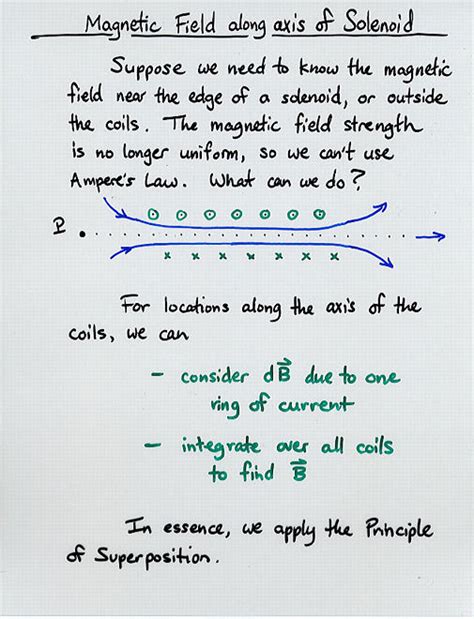 Magnetic Field along axis of Solenoid
Suppose we need to know the magnetic
field near the edge of a solenoid, or outside
the coils. The magnetic field strength
is no longer uniform, so we can't use
Ampere's Law. What can we do?
P
x x x x x x x
For locations along the axis of the
coils, we can
- consider dB⃗ due to one
ring of current
- integrate over all coils
to find B⃗
In essence, we apply the Principle
of Superposition.